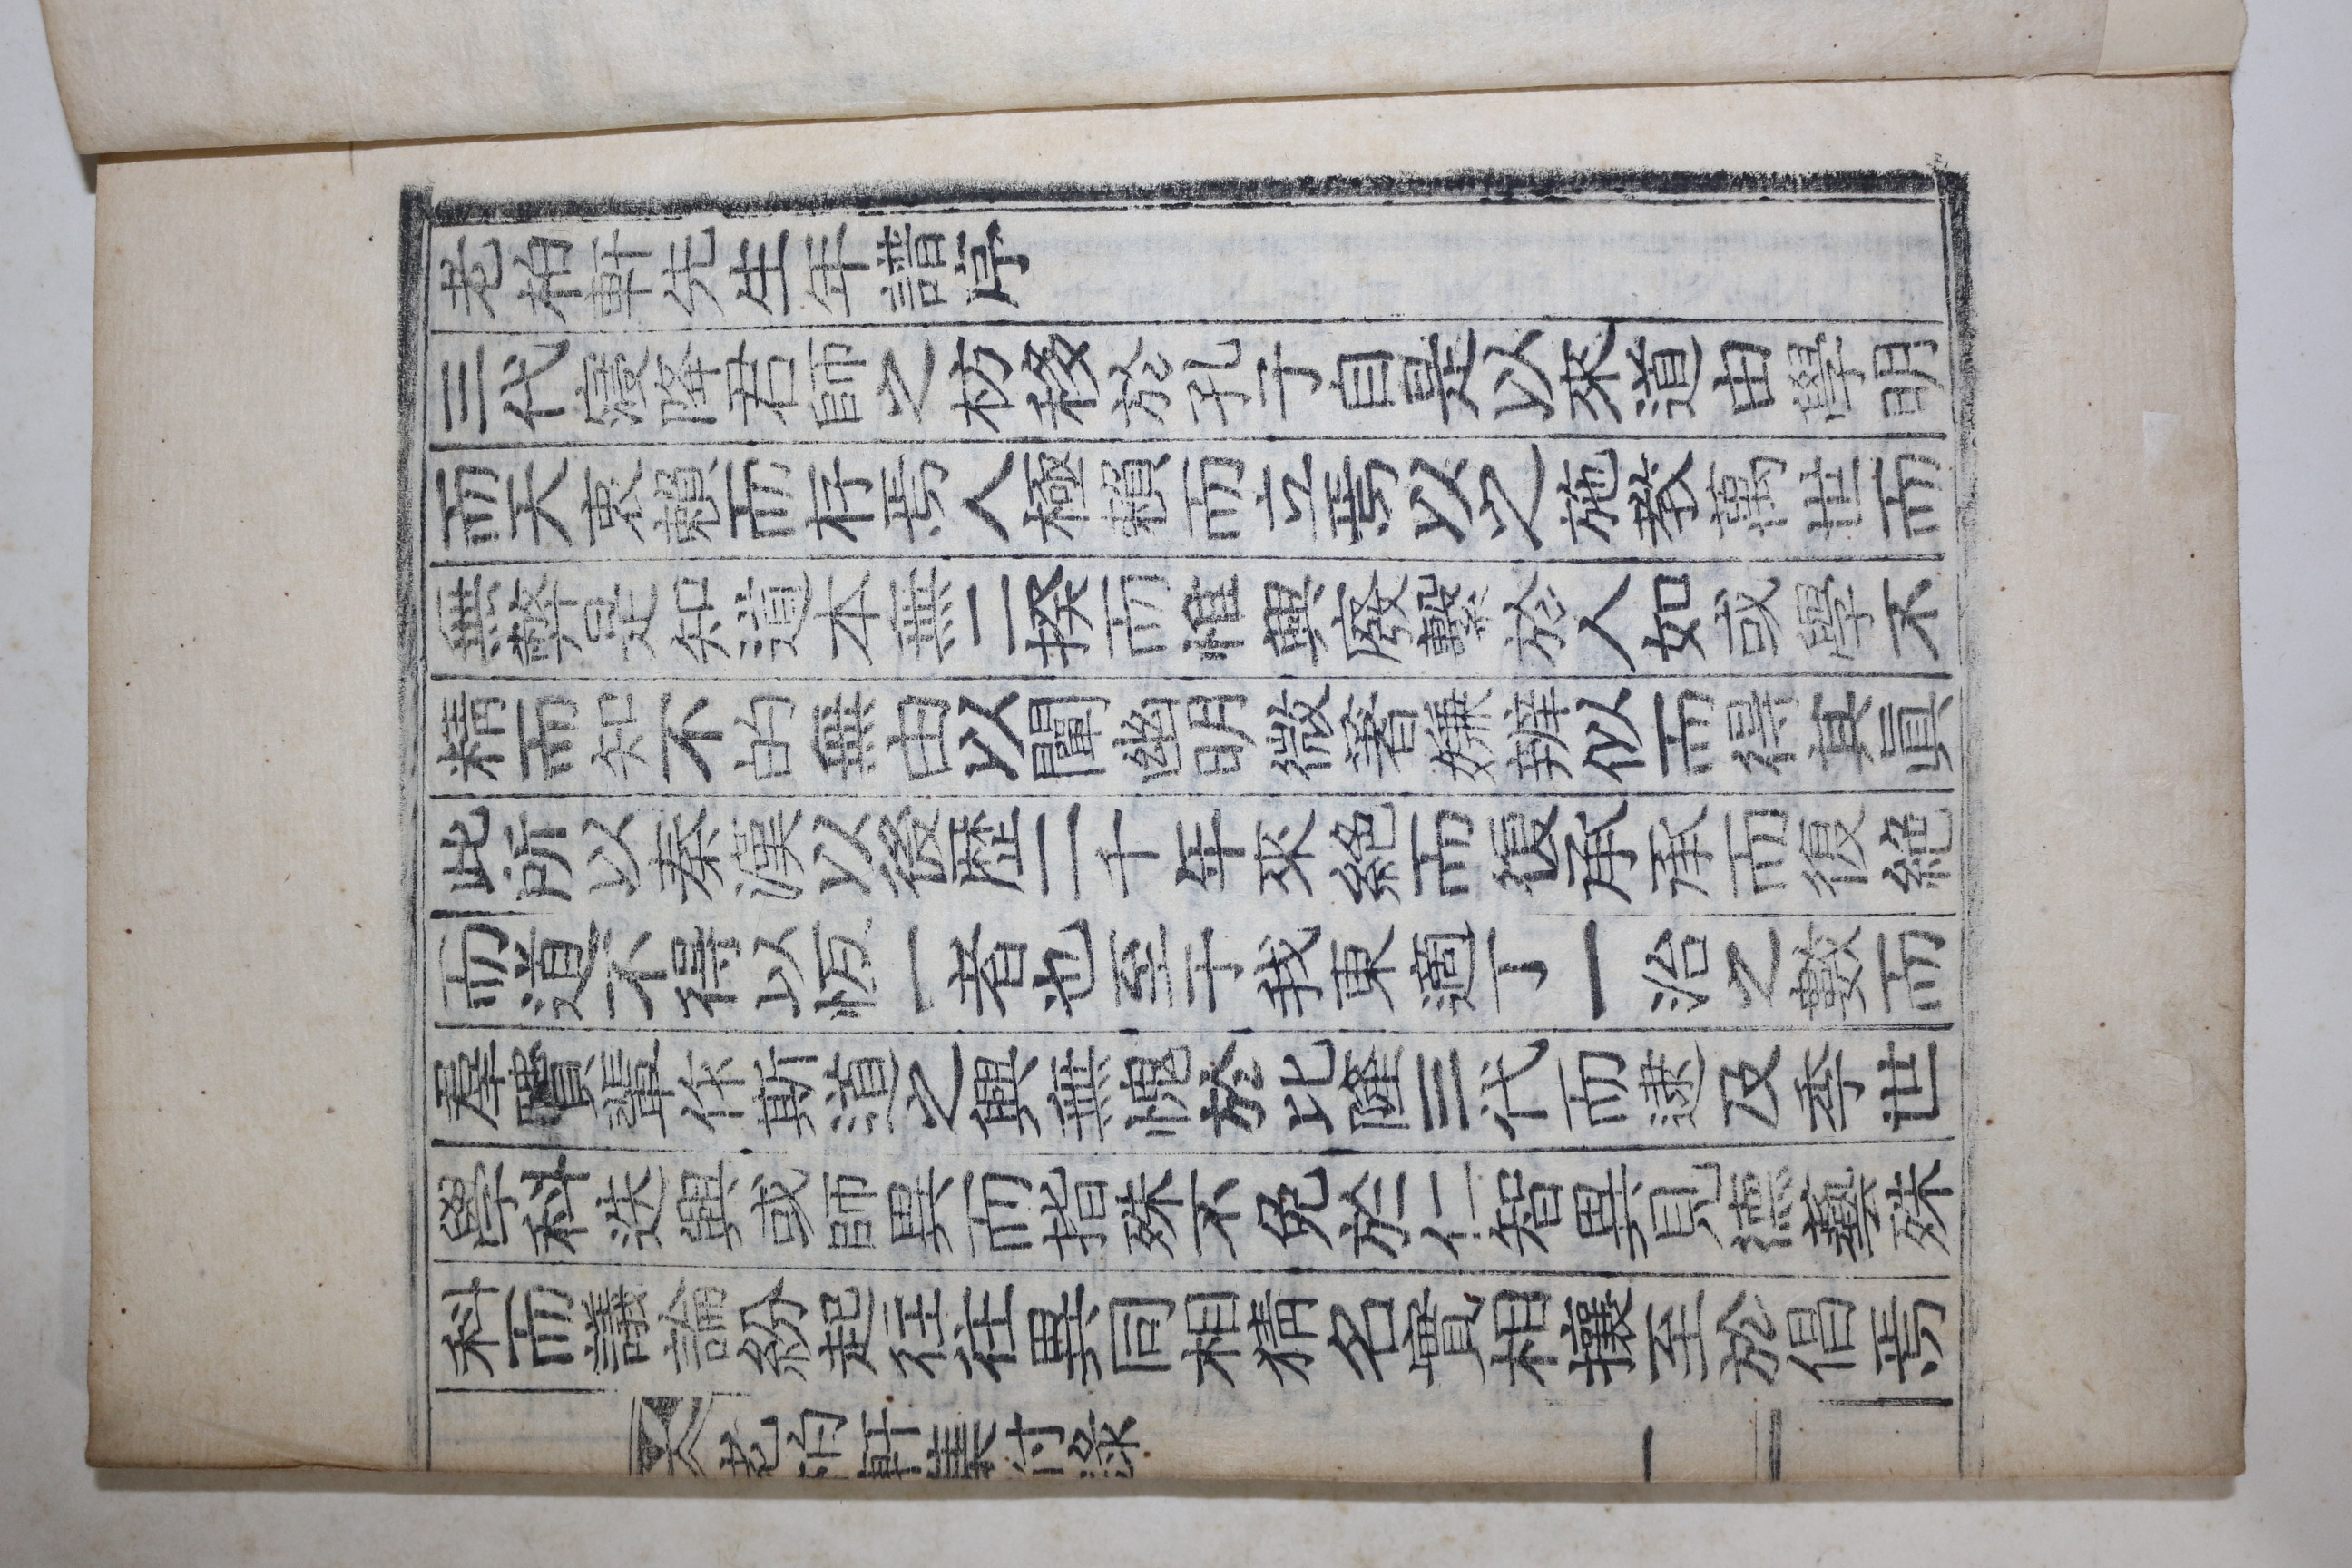 老栢軒先生年譜序
三代寖降君師之材移於孔子自是以來道由學明
而天衷賴而存焉人極賴而立焉以之施教萬世而
無弊是知道本無二揆而惟興廢繫於人如或學不
精而知不的無由以闡幽明微著嫌辨似而得其眞
此所以秦漢以後歷二千年來絕而復承承而復絕
而道不得以恒一者也至于我東適丁一治之數而
羣賢輩作斯道之興無愧於比隆三代而逮及季世
學科迭興或師異而指殊不免於仁智異見德藝殊
科而議論紛起往往異同相猜名實相攘至於倡焉
老栢軒集付录 一